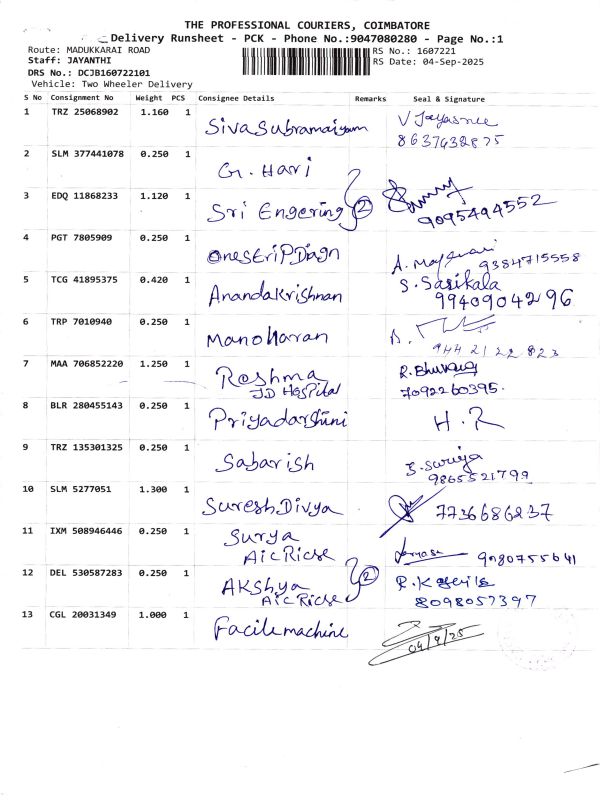 THE PROFESSIONAL COURIERS, COIMBATORE
Delivery Runsheet - PCK - Phone No.:9047080280 - Page No.:1
Route: MADUKKARAI ROAD
RS No.: 1607221
Staff: JAYANTHI
RS Date: 04-Sep-2025
DRS No.: DCJB160722101
Vehicle: Two Wheeler Delivery
S No Consignment No Weight PCS Consignee Details Remarks Seal & Signature
1 TRZ 25068902 1.160 1 Sivasubramaiyam V Jayasree
8637432875
2 SLM 377441078 0.250 1 G. Hari
3 EDQ 11868233 1.120 1 Sri Engering 2
9095494552
4 PGT 7805909 0.250 1 OnestripDiagn A.
9384715558
5 TCG 41895375 0.420 1 Anandakrishnan S. Sasikala
9940904296
6 TRP 7010940 0.250 1 Manoharan
944 21 22 823
7 MAA 706852220 1.250 1 Reshma
JD Hospital
7092260395.
8 BLR 280455143 0.250 1 Priyadarshini H.R
9 TRZ 135301325 0.250 1 Sabarish S. Suriya
9865521799
10 SLM 5277051 1.300 1 Suresh Divya 7736686237
11 IXM 508946446 0.250 1 Surya
AIC Ricse
12 DEL 530587283 0.250 1 Akshya 2
AIC Ricse
8098057397
13 CGL 20031349 1.000 1 Facile machine
04/9/25